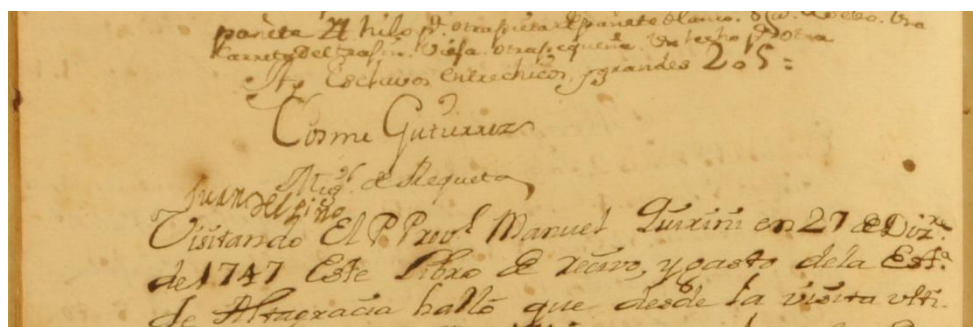 pañete 4 hilo pª. otra pieta de pañete blanco. Una
Carreta del trafin. Vieja. otra pequeña. Un techo pª otra
Ay Esclavos entre chicos, y grandes 205=
Cosme Gutierrez
Migᵉˡ de Requeta
Juan del Pino
Visitando El P Provˡ Manuel Quirini en 27 de Dizʳᵉ
de 1747 Este Libro de recivo, y gasto dela Estᵃ
de Altagracia halló que desde la visita ulti